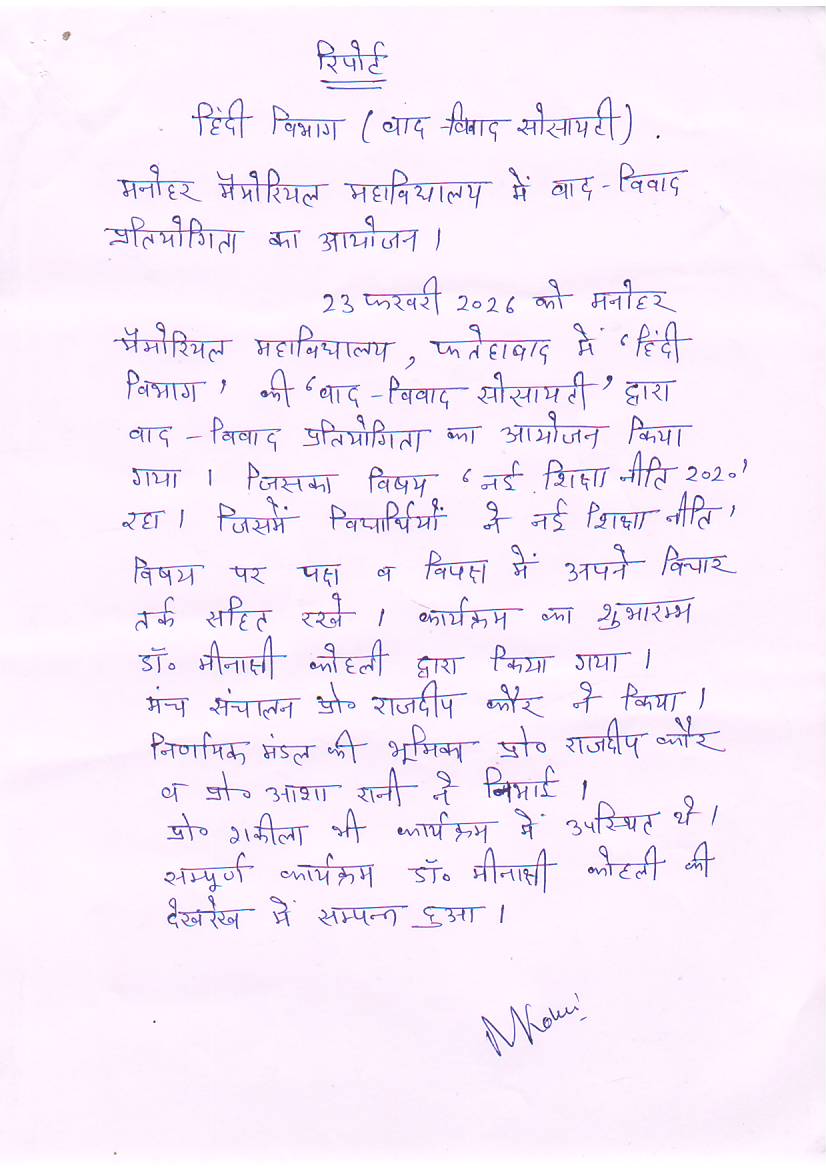 रिपोर्ट
हिंदी विभाग ( वाद -विवाद सोसायटी) .
मनोहर मैमोरियल महाविद्यालय में वाद -विवाद
प्रतियोगिता का आयोजन ।
23 फरवरी 2026 को मनोहर
मैमोरियल महाविद्यालय , फतेहाबाद में ‘हिंदी
विभाग’ की ‘वाद -विवाद सोसायटी’ द्वारा
वाद - विवाद प्रतियोगिता का आयोजन किया
गया । जिसका विषय ‘नई शिक्षा नीति 2020’
रहा । जिसमें विद्यार्थियों ने नई शिक्षा नीति’
विषय पर पक्ष व विपक्ष में अपने विचार
तर्क सहित रखे । कार्यक्रम का शुभारम्भ
डॉ० मीनाक्षी कोहली द्वारा किया गया ।
मंच संचालन प्रो० राजदीप कौर ने किया ।
निर्णायक मंडल की भूमिका प्रो० राजदीप कौर
व प्रो० आशा रानी ने निभाई ।
प्रो० शकीला भी कार्यक्रम में उपस्थित थे ।
सम्पूर्ण कार्यक्रम डॉ० मीनाक्षी कोहली की
देखरेख में सम्पन्न हुआ ।